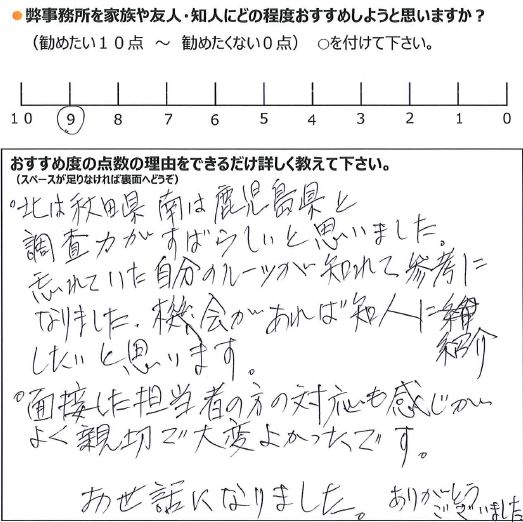 ●弊事務所を家族や友人・知人にどの程度おすすめしようと思いますか？
（勧めたい１０点　～　勧めたくない０点）　○を付けて下さい。
10 9 8 7 6 5 4 3 2 1 0
おすすめ度の点数の理由をできるだけ詳しく教えて下さい。
（スペースが足りなければ裏面へどうぞ）
°北は秋田県 南は鹿児島県と
調査力がすばらしいと思いました。
忘れていた自分のルーツが知れて参考に
なりました。機会があれば知人に
紹介
したいと思います。
°面接した担当者の方の対応も感じが
よく親切で大変よかったです。
おせ話になりました。ありがとう
ございました